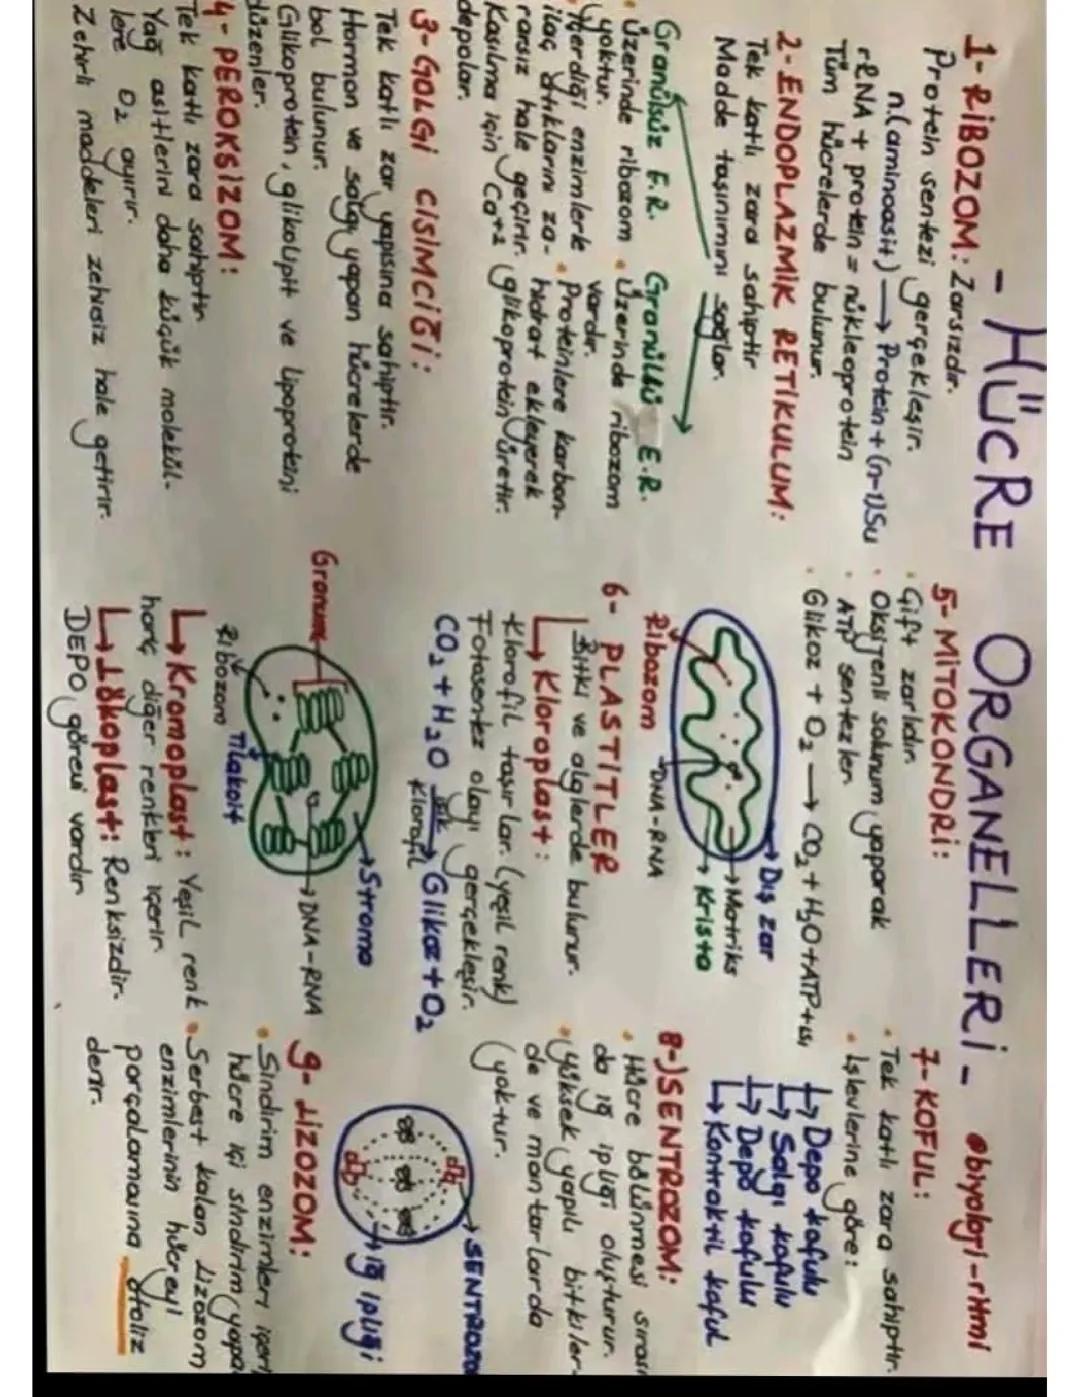 - HÜCRE ORGANELLERİ -
•biyoloji-ritmi
1- RİBOZOM: Zarsızdır.
Protein sentezi gerçekleşir.
n(aminoasit) → Protein + (n-1)Su
rRNA + protein = nükleoprotein
Tüm hücrelerde bulunur.
2- ENDOPLAZMİK RETİKULUM:
Tek katlı zara sahiptir
Madde taşınımını sağlar.
Granülsüz E.R.
• Üzerinde ribozom
yoktur.
• İçerdiği enzimlerle
ilaç atıklarını za-
rarsız hale geçirir.
Kasılma için Ca+2
depolar.
Granüllü E.R.
• Üzerinde ribozom
vardır.
• Proteinlere karbon-
hidrat ekleyerek
glikoprotein üretir.
3- GOLGİ CİSİMCİĞİ:
Tek katlı zar yapısına sahiptir.
Hormon ve salgı yapan hücrelerde
bol bulunur.
Glikoprotein, glikolipit ve lipoproteini
düzenler.
4- PEROKSİZOM:
Tek katlı zara sahiptir
Yağ asitlerini daha küçük molekül-
lere O2 ayırır.
Zehirli maddeleri zehirsiz hale getirir.
5- MİTOKONDRİ:
• Çift zarlıdır.
• Oksijenli solunum yaparak
• ATP sentezler.
• Glikoz + O2 → CO2 + H2O + ATP + ısı
Dış zar
Matriks
Krista
DNA-RNA
Ribozom
6- PLASTİTLER
Bitki ve alglerde bulunur.
→ Kloroplast:
Klorofil taşırlar. (yeşil renk)
Fotosentez olayı gerçekleşir.
CO2 + H2O ışık → klorofil Glikoz + O2
Stroma
Granum
DNA-RNA
Ribozom
Tilakoit
→ Kromoplast: Yeşil renk
hariç diğer renkleri içerir.
→ Lökoplast: Renksizdir.
DEPO görevi vardır
7- KOFUL:
• Tek katlı zara sahiptir.
• İşlevlerine göre:
→ Depo kofulu
→ Salgı kofulu
→ Depo kofulu
→ Kontraktil koful
8-) SENTROZOM:
• Hücre bölünmesi sırasın
da iğ ipliği oluşturur.
• Yüksek yapılı bitkiler-
de ve mantarlarda
yoktur.
SENTROZO
iğ ipliği
9- LİZOZOM:
• Sindirim enzimleri içeri
hücre içi sindirim yapa
• Serbest kalan Lizozom
enzimlerinin hücreyi
parçalamasına otoliz
denir.